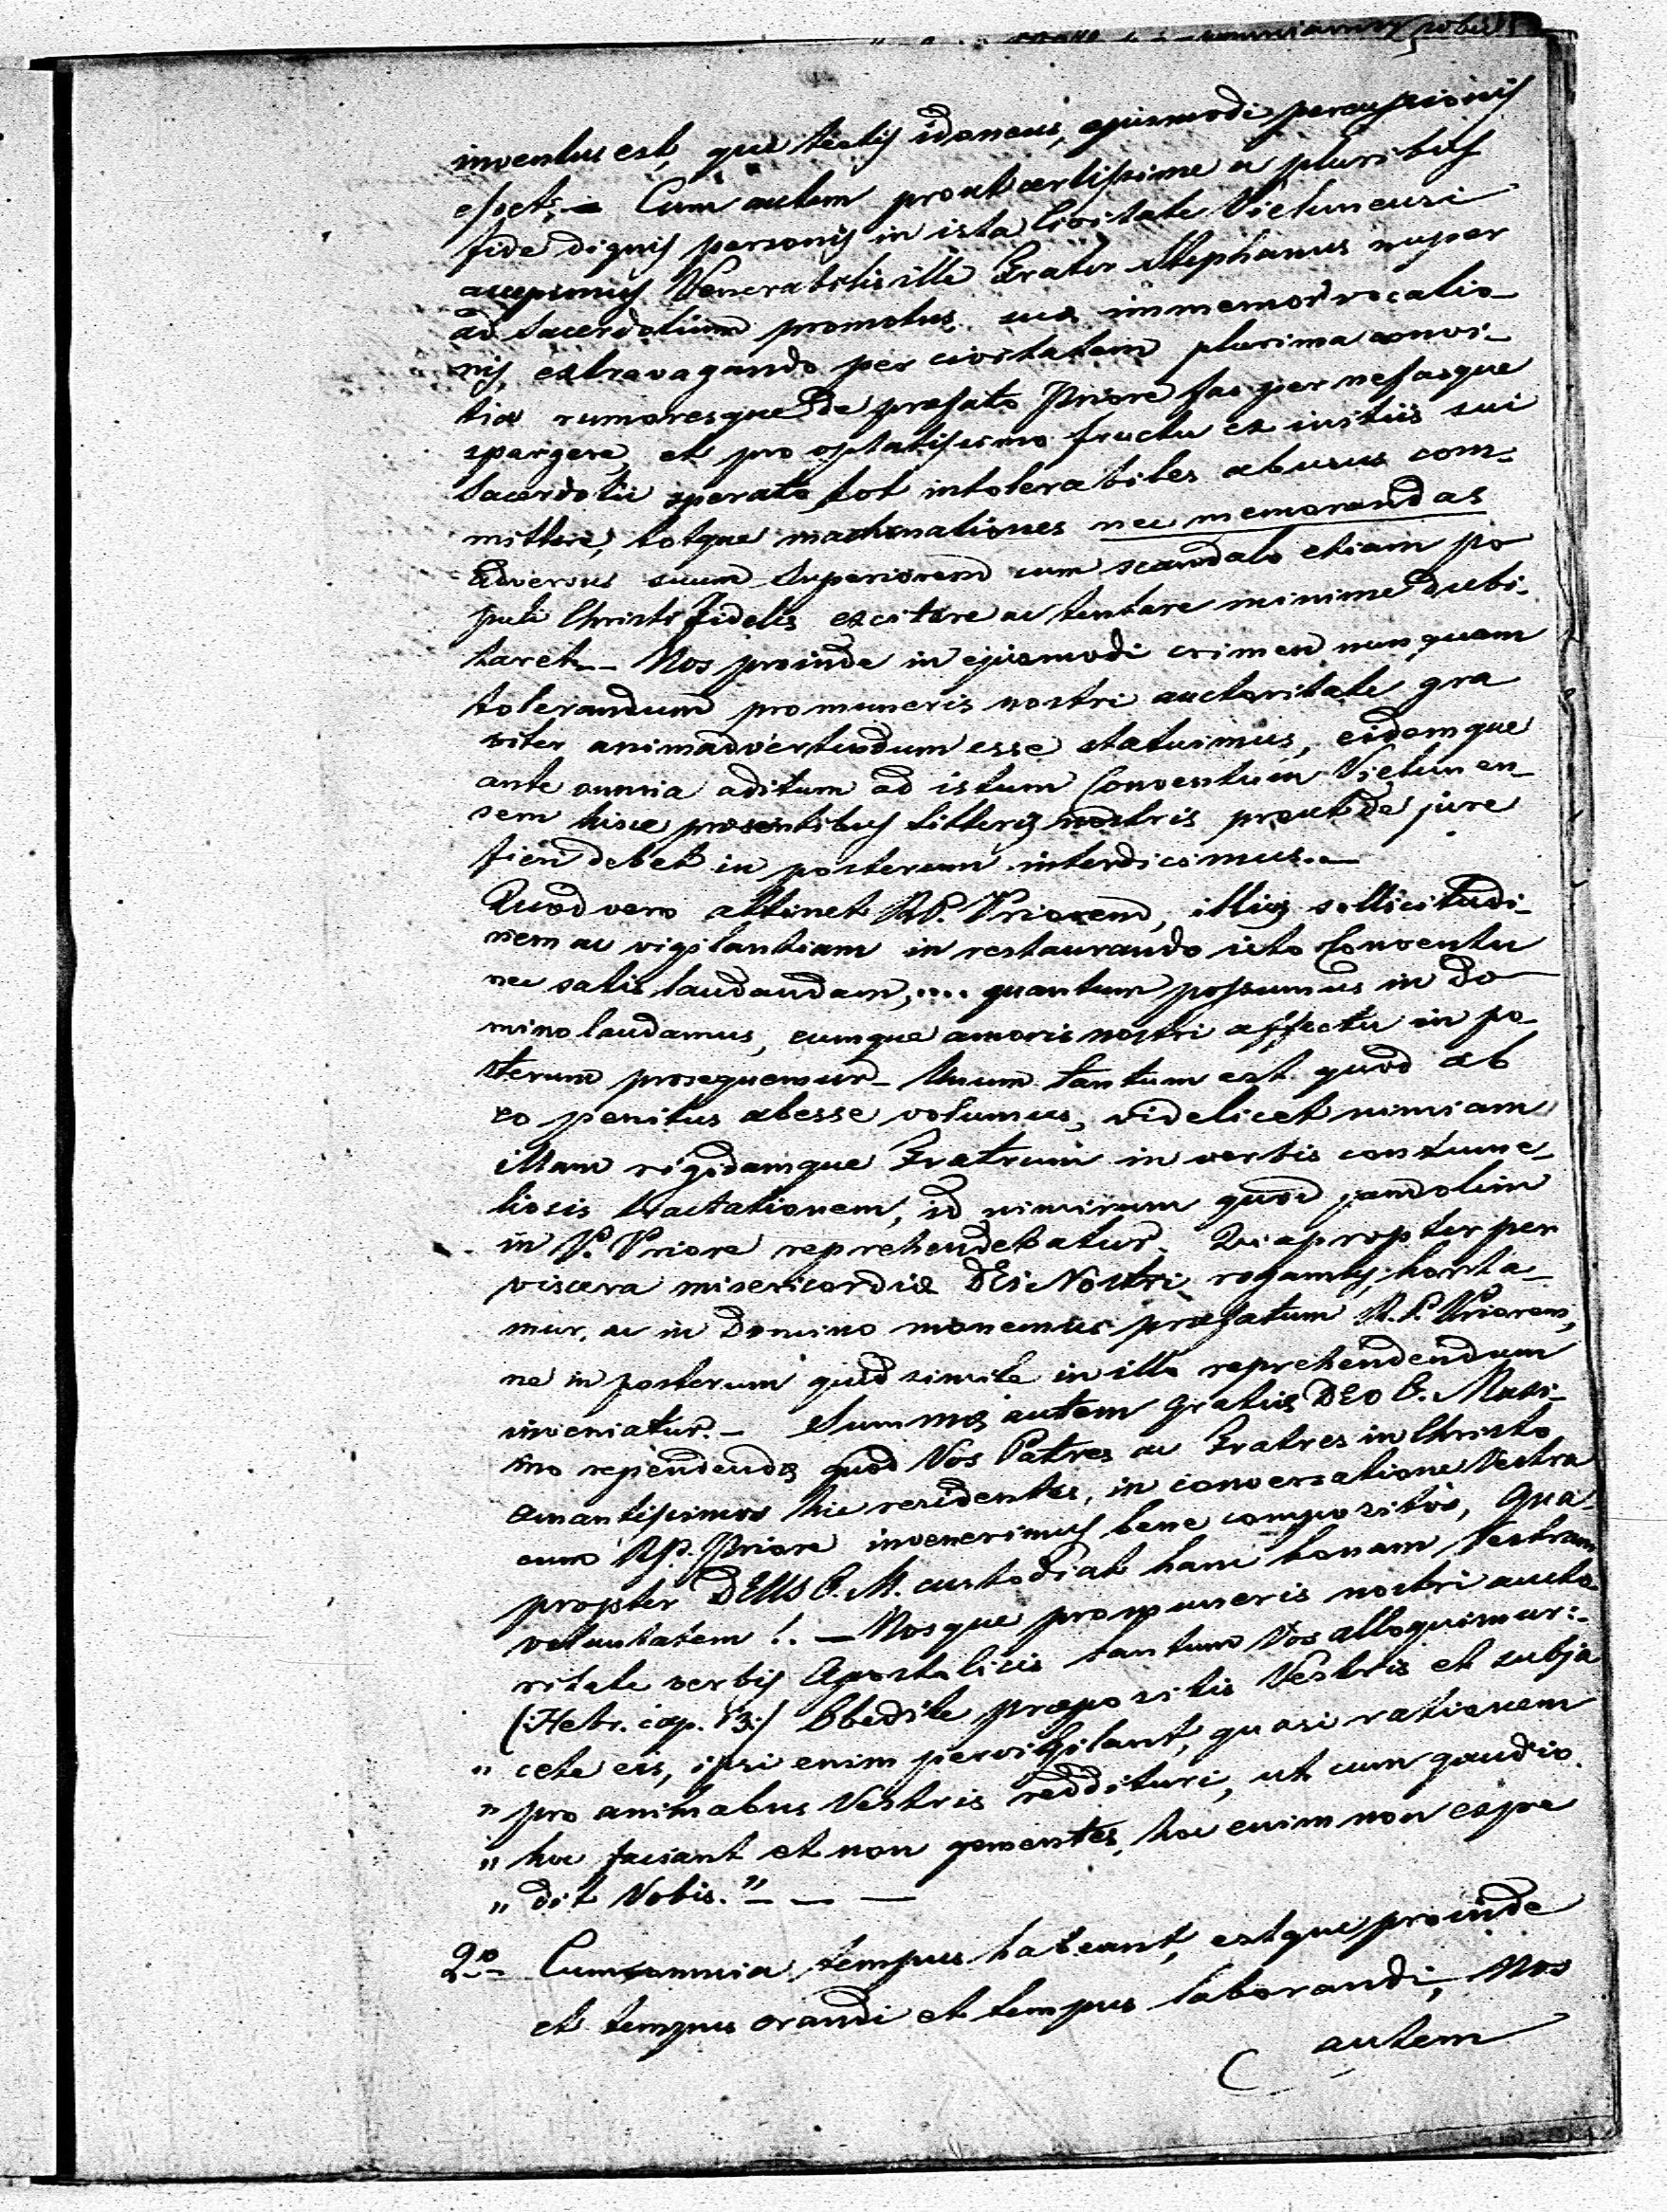 inventus est, qui testis idoneus, ejusmodi percussionis
esset; — Cum autem prout certissime a pluribus
fide dignis personis in ista Civitate Vielunensi
accepimus Venerabilis ille Frater Stephanus nuper
ad Sacerdotium promotus, suæ immemor vocatio-
nis, extravagando per civitatem plurima convi-
tia rumoresque de præfato Priore fas per nefasque
spargere, et pro optatissimo fructu ex initiis sui
Sacerdotii sperato, tot intolerabiles abusus com-
mittere, totque machinationes nec memorandas
adversus suum Superiorem cum scandalo etiam po
puli Christi fidelis excitare ac tentare minime dubi-
taret. — Nos proinde in ejusmodi crimen nunquam
tolerandum pro muneris nostri auctoritate gra
viter animadvertendum esse statuimus, eidemque
ante omnia aditum ad istum Conventum Vielunen-
sem hisce præsentibus litteris nostris prout de jure
fieri debet in posterum interdicimus. —
Quod vero attinet R.P. Priorem, illius sollicitudi-
nem ac vigilantiam in restaurando isto Conventu
nec satis laudandam, .... quantum possumus in Do
mino laudamus, eumque amoris nostri affectu in po-
sterum prosequemur — Unum tantum est quod ab
eo penitus abesse volumus, videlicet nimiam
illam rigidamque Fratrum in verbis contume-
liosis tractationem, id nimirum quod jam olim
in P. Priore reprehendebatur. Quapropter per
viscera misericordiæ DEi Nostri rogamus, horta-
mur, ac in Domino monemus præfatum R.P. Priorem,
ne in posterum quid simile in illo reprehendendum
inveniatur. — Summas autem gratias DEO O. Maxi-
mo rependendas quod Vos Patres ac Fratres in Christo
amantissimos hic residentes, in conversatione Vestra
cum R.P. Priore invenerimus bene compositos, Qua-
propter DEUS O. M. custodiat hanc bonam Vestram
voluntatem! . — Nosque pro muneris nostri aucto-
ritate verbis Apostolicis tantum Vos alloquimur: -
(Hebr. cap. 13:) Obedite præpositis Vestris et subja
" cete eis, ipsi enim pervigilant, quasi rationem
" pro animabus Vestris reddituri, ut cum gaudio
" hoc faciant et non gementes, hoc enim non expe
" dit Vobis." — — —
2o Cum omnia tempus habeant, estque proinde
et tempus orandi et tempus laborandi, Nos
autem